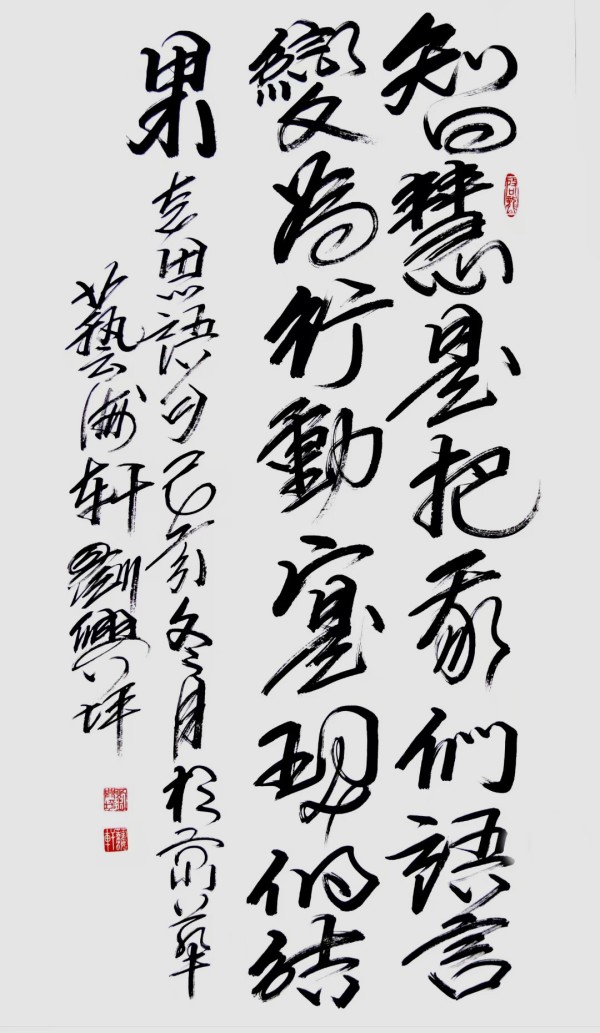 智慧是把我們語言
變為行動寔現的結
果 思語句己亥冬月於華
藝海軒劉興坪